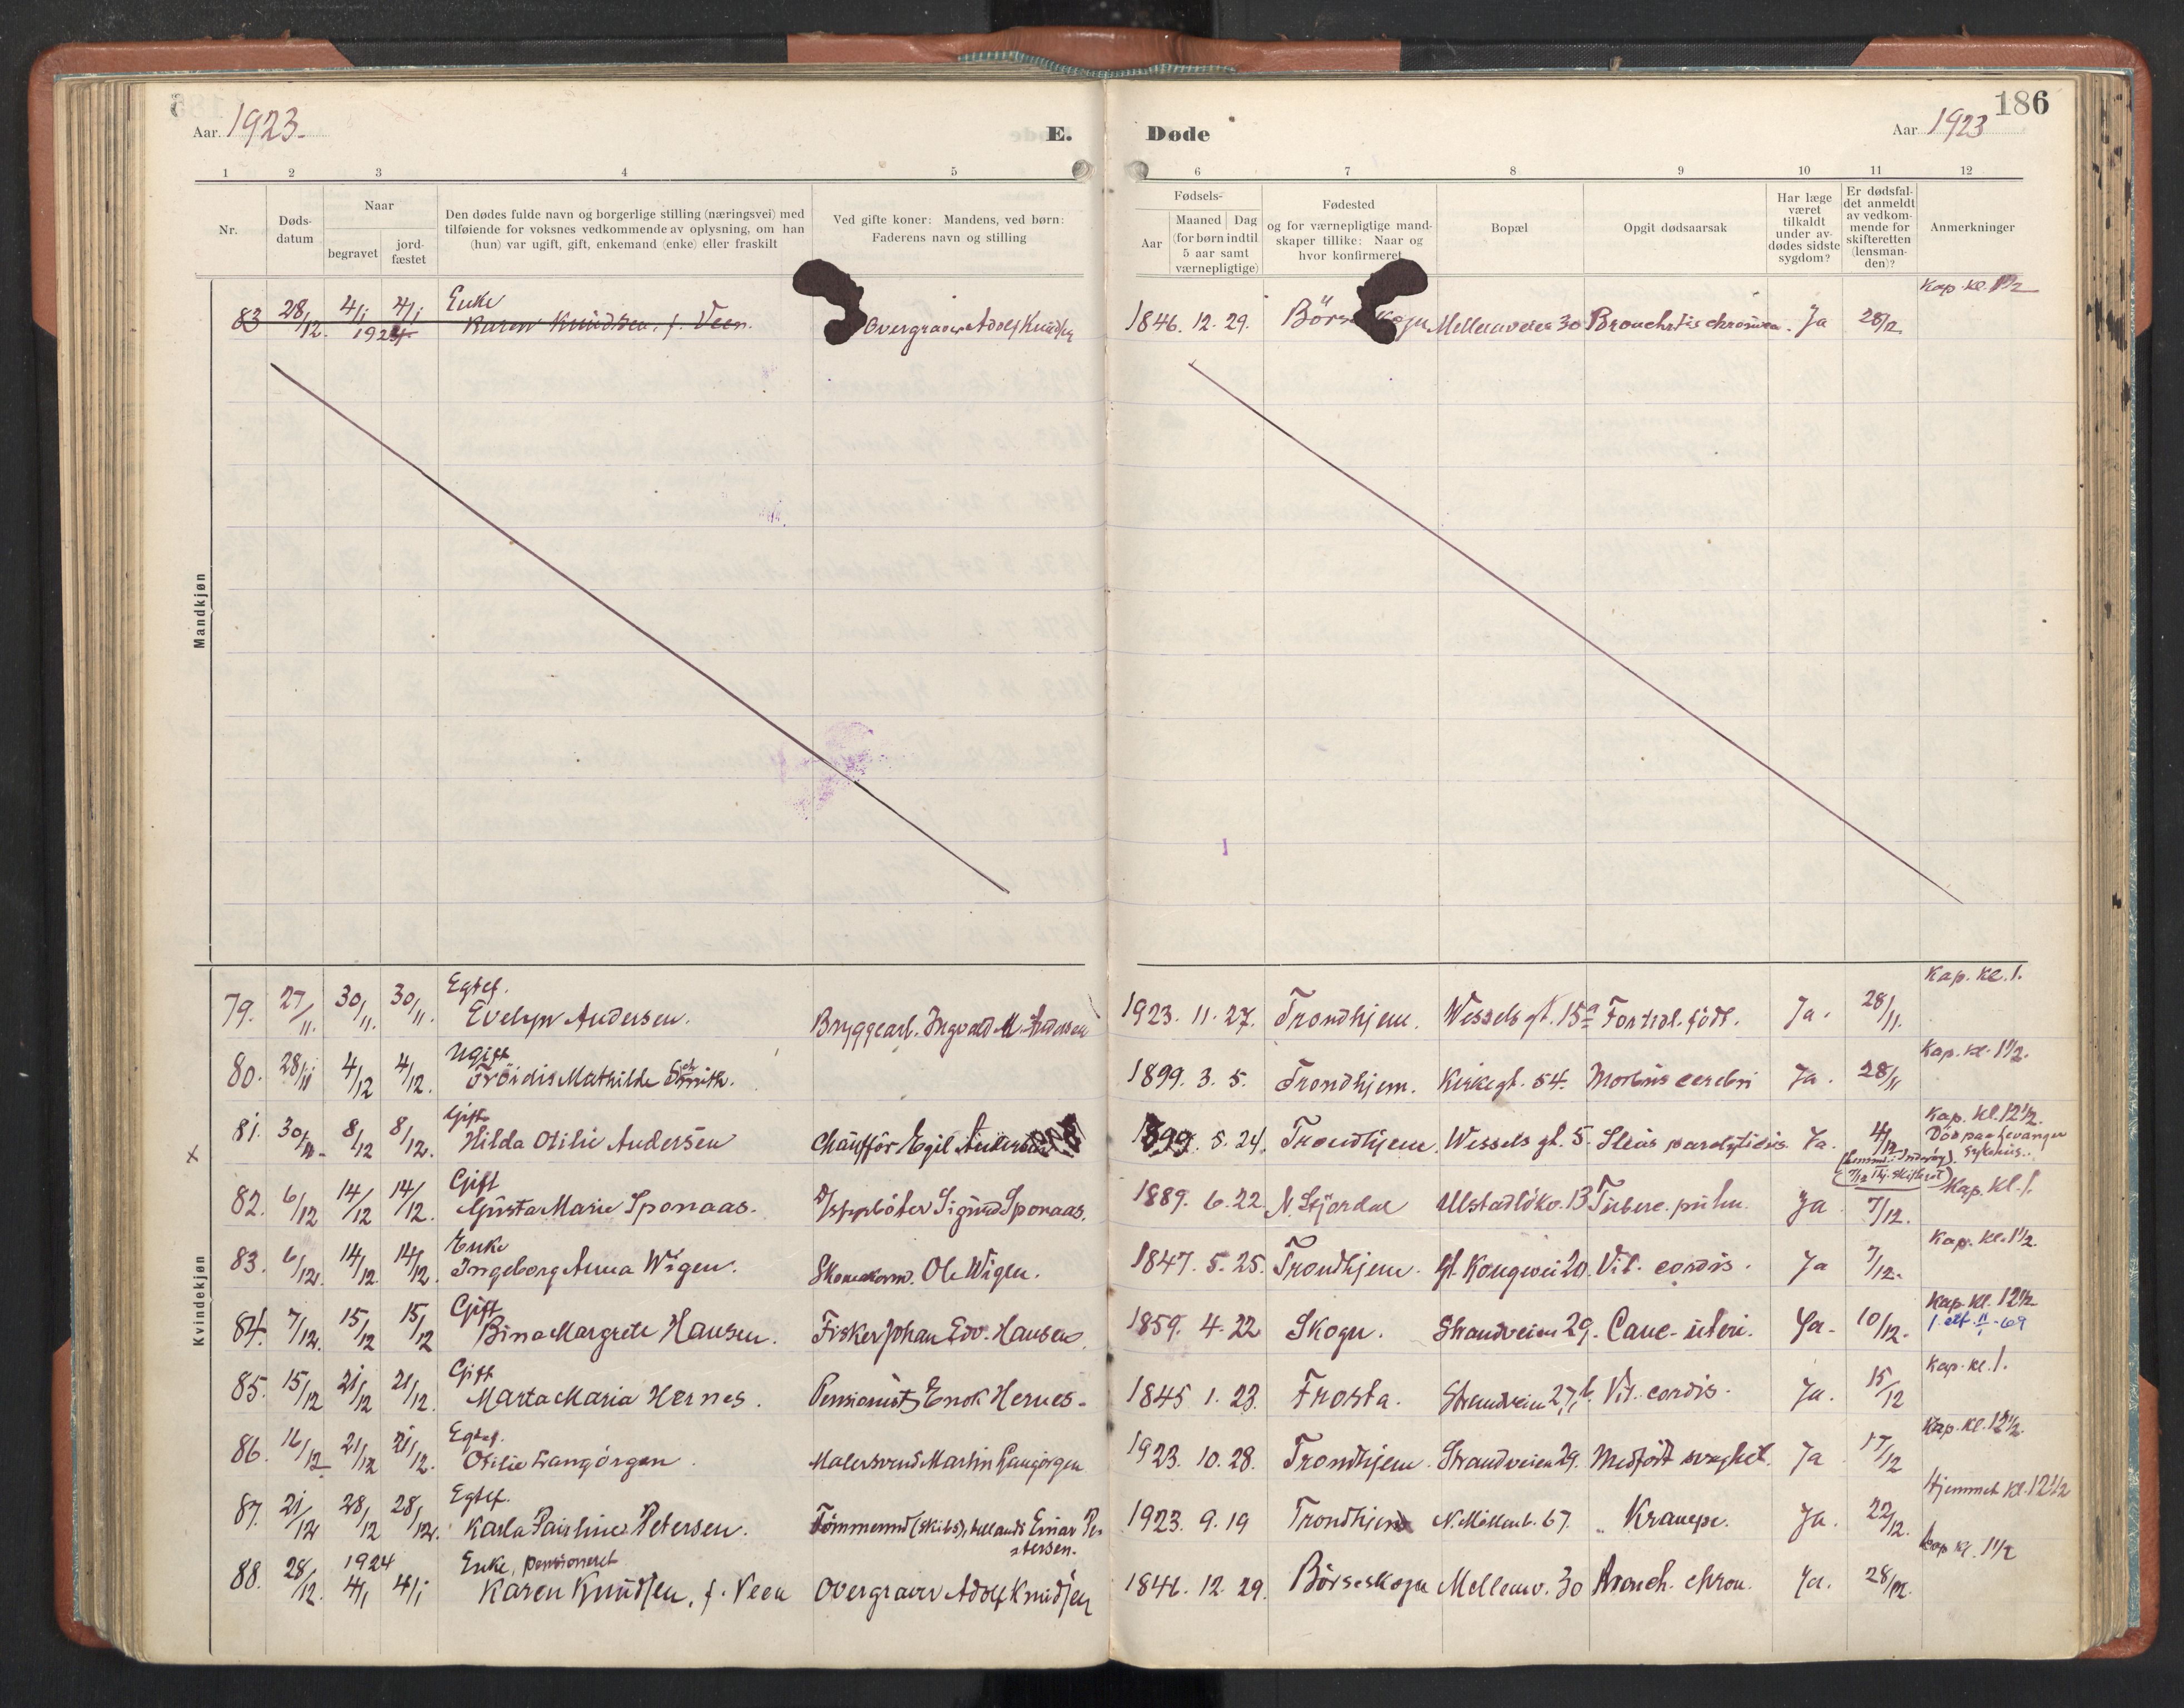 186
Aar 1923. E. Døde Aar 1923
1 2 3 4 5 6 7 8 9 10 11 12
Nr.
Døds-
datum
Naar
begravet
jord-
fæstet
Den dødes fulde navn og borgerlige stilling (næringsvei) med
tilføiende for voksnes vedkommende av oplysning, om han
(hun) var ugift, gift, enkemand (enke) eller fraskilt
Ved gifte koner: Mandens, ved børn:
Faderens navn og stilling
Fødsels-
Aar
Maaned Dag
(for børn indtil
5 aar samt
værnepligtige)
Fødested
og for værnepligtige mand-
skaper tillike: Naar og
hvor konfirmeret
Bopæl
Opgit dødsaarsak
Har læge
været
tilkaldt
under av-
dødes sidste
sygdom?
Er dødsfal-
det anmeldt
av vedkom-
mende for
skifteretten
(lensman-
den)?
Anmerkninger
Mandkjøn
Enke Kap. kl. 1 1/2
83 28/12. 4/1 4/1 Karen Knudsen, f. Veen. Overgraver Adolf Knudsen 1846. 12. 29. Mellemveien 30 Bronchitis chronica. Ja 28/12
1924
Kvindekjøn
Egtef. Kap. kl. 1.
79. 27/11. 30/11. 30/11. Evelyn Andersen. Bryggearb. Ingvald M. Andersen 1923. 11. 27. Trondhjem. Wessels gt. 15a Fortidl. født. Ja. 28/11.
Ugift Kap. kl. 1 1/2.
80. 28/11 4/12 4/12. Frøidis Mathilde Schmith. 1899. 3. 5. Trondhjem. Kirkegt. 54. Morbus cerebri Ja. 28/11
Gift Kap. kl. 12 1/2.
81. 30/11- 8/12 8/12. Hilda Otilie Andersen Chauffør Egil Andersen 1899. 5. 24. Trondhjem. Wessels gt. 5. Ileus paralyticus. Ja. 4/12 Død paa Levanger
Sykehus.
7/12 Thj. Skifteret)
Gift Kap. kl. 1.
82. 6/12 14/12 14/12. Gusta Marie Sponaas. Sigurd Sponaas. 1889. 6. 22. N. Stjørdal Ulstadløk. 13 Tuberc. pulm. Ja 7/12.
Enke Kap. kl. 1 1/2.
83. 6/12. 14/12. 14/12. Ingeborg Anna Wigen. Ole Wigen. 1847. 5. 25. Trondhjem. Gl. Kongevei 20. Vit. cordis. Ja 7/12.
Gift Kap. kl. 12 1/2
84. 7/12. 15/12 15/12 Bina Margrete Hansen. Fisker Johan Edv. Hansen. 1859. 4. 22 Skogn. Strandveien 29. Canc. uteri. Ja. 10/12. 1 att. 11/1-69
Gift Kap. kl. 1.
85. 15/12 21/12 21/12. Marta Maria Hernes. Pensionist Enok Hernes. 1845 1. 23. Frosta. Strandveien 27b. Vit. cordis. Ja. 15/12
Egtef. Kap. kl. 12 1/2.
86. 16/12 21/12 21/12. Otilie Langørgen. Malersvend Martin Langørgen 1923. 10. 28. Trondhjem. Strandveien 29. Medfødt svaghet. Ja 17/12
Egtef. Hjemmet kl. 12 1/2
87. 21/12 28/12 28/12. Karla Pauline Petersen. Tømmermd (skibs), Einar Pe-
tersen. 1923. 9. 19 Trondhjem N. Møllenb. 67. Krampe. Ja. 22/12.
1924 Enke, pensioneret Kap kl. 1 1/2
88. 28/12. 4/1 4/1 Karen Knudsen, f. Veen Overgraver Adolf Knudsen 1846. 12. 29. Børseskogn Mellemv. 30 Bronch. chron. Ja. 28/12.